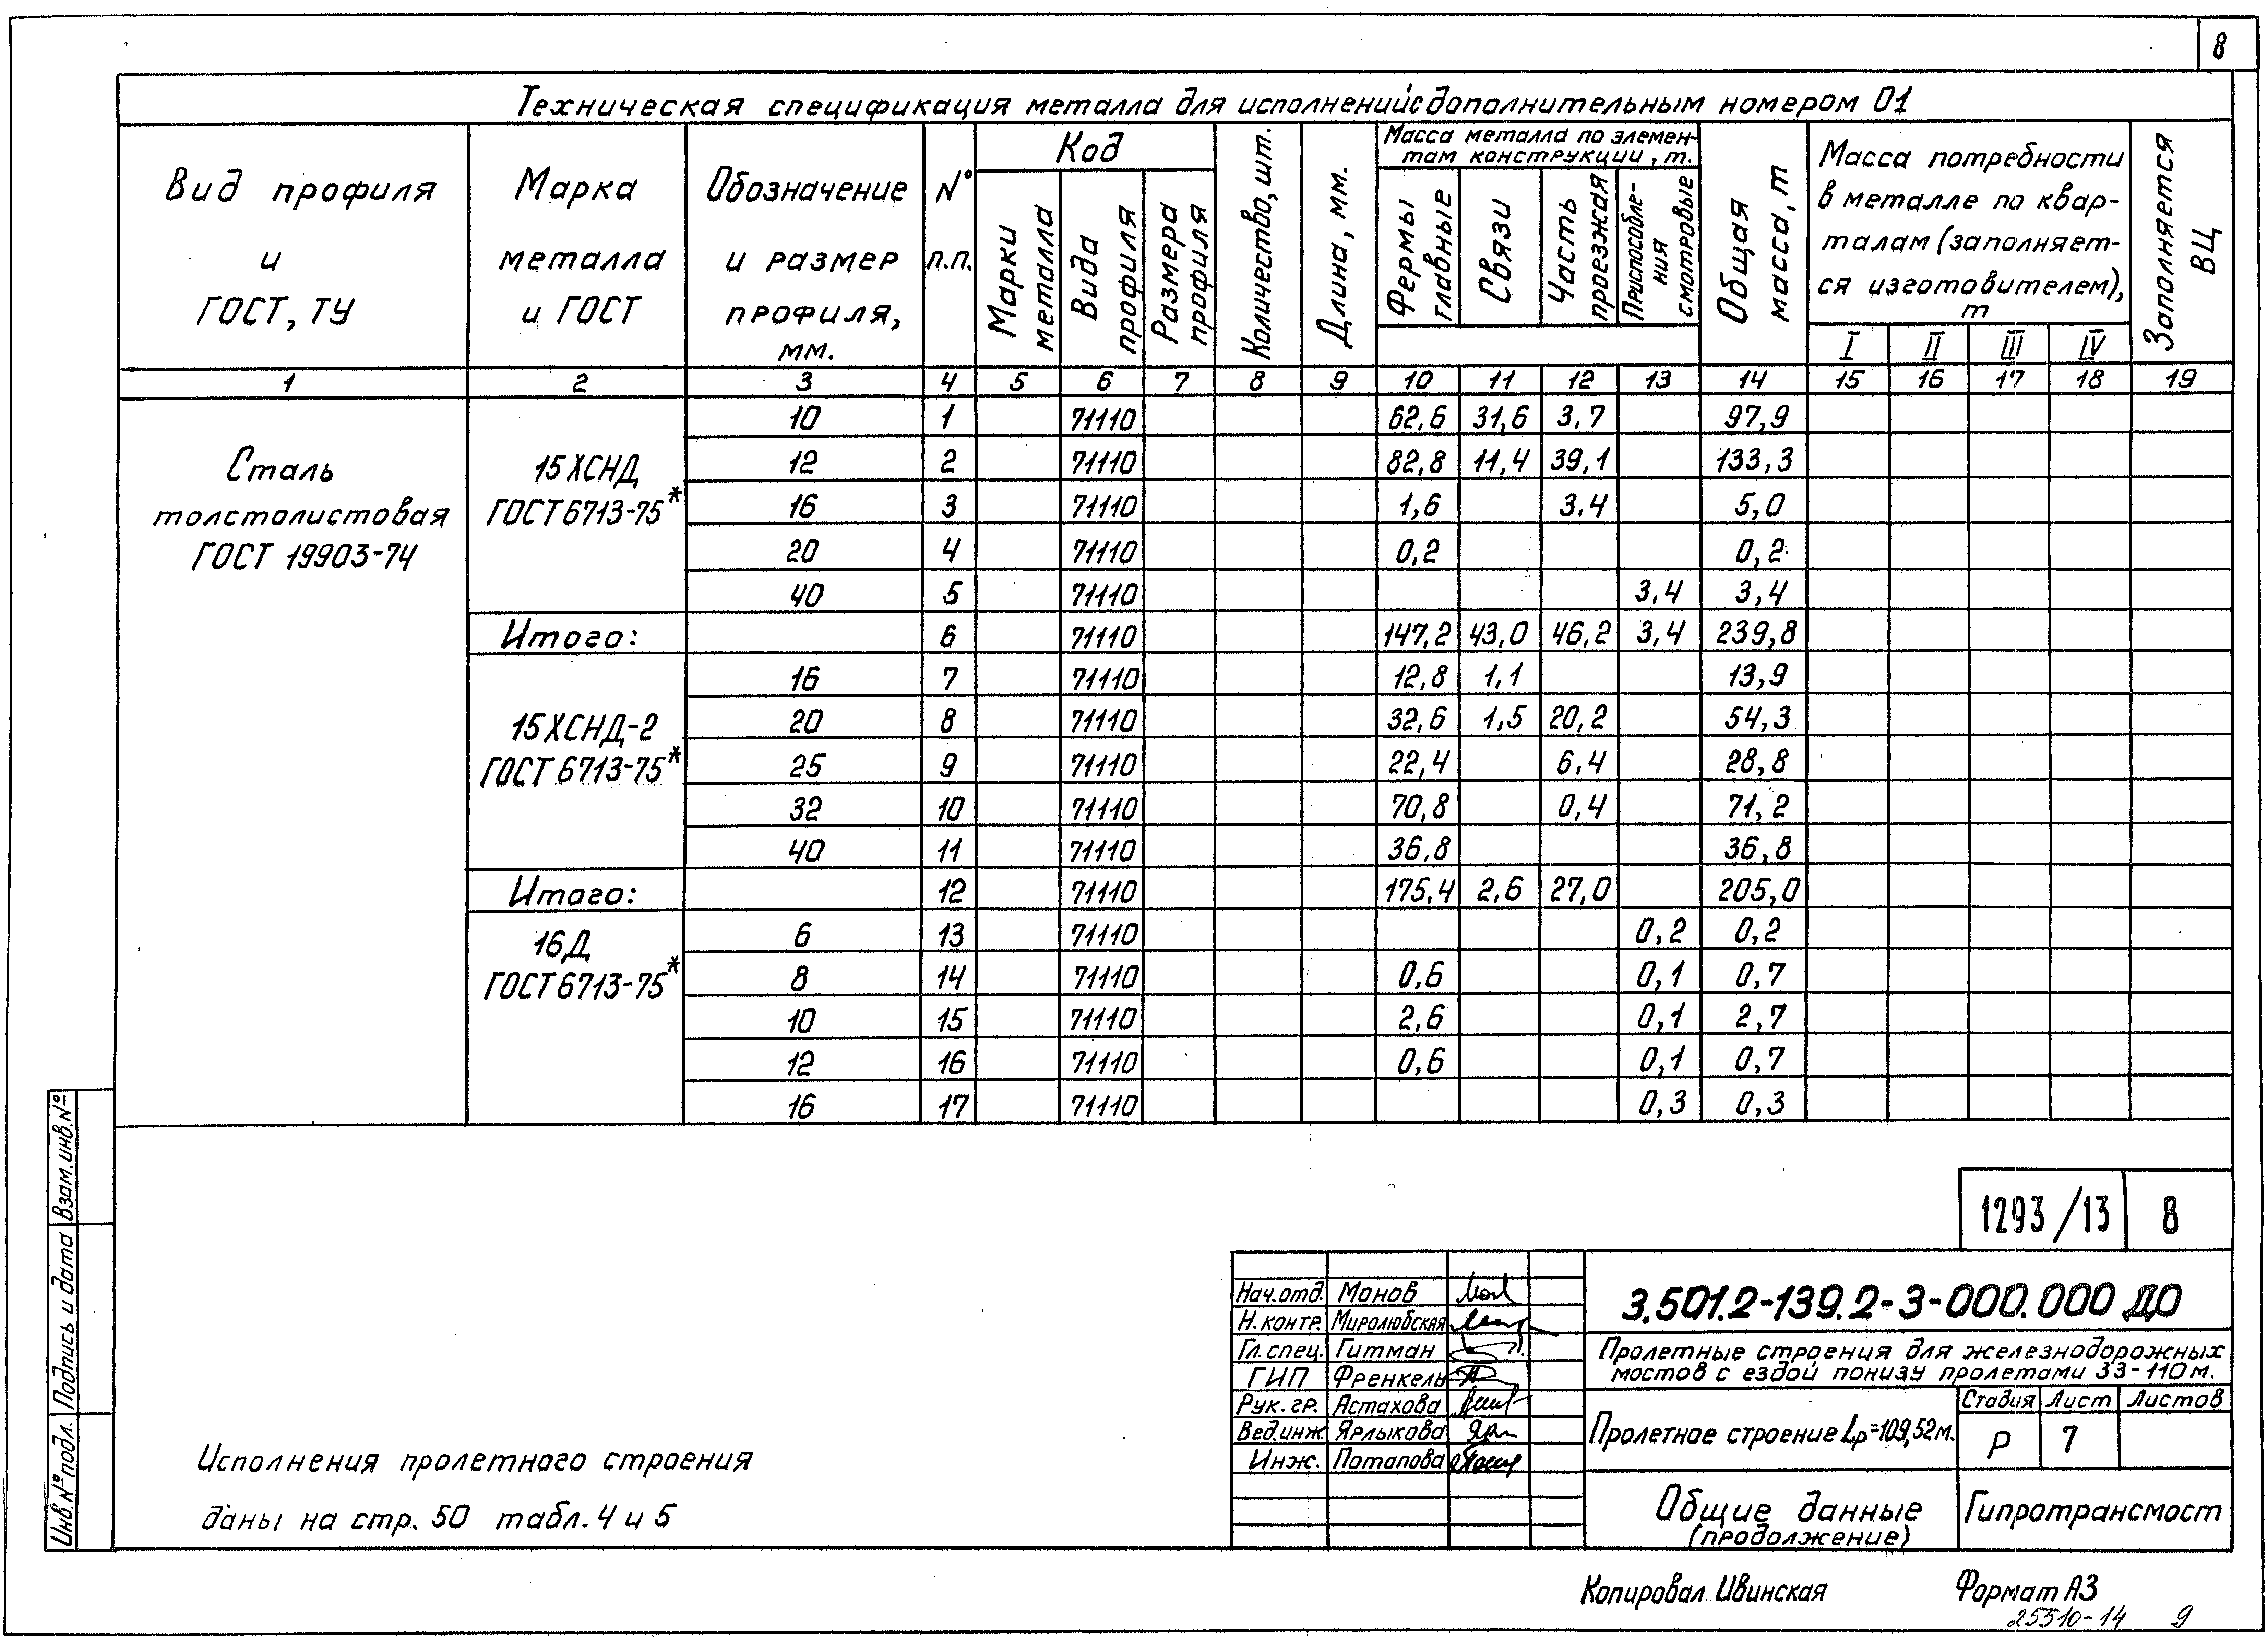 8
Техническая спецификация металла для исполнений с дополнительным номером 01
Вид профиля и ГОСТ, ТУ
Марка металла и ГОСТ
Обозначение и размер профиля, мм.
№ п.п.
Код
Марки металла
Вида профиля
Размера профиля
Количество, шт.
Длина, мм.
Масса металла по элемен-
там конструкции, т.
Фермы главные
Связи
Часть проезжая
Приспособле-
ния смотровые
Общая масса, т
Масса потребности
в металле по квар-
талам (заполняет-
ся изготовителем),
т
I II III IV
Заполняется ВЦ
1 2 3 4 5 6 7 8 9 10 11 12 13 14 15 16 17 18 19
Сталь
толстолистовая
ГОСТ 19903-74
15ХСНД
ГОСТ 6713-75*
10 1 71110 62,6 31,6 3,7 97,9
12 2 71110 82,8 11,4 39,1 133,3
16 3 71110 1,6 3,4 5,0
20 4 71110 0,2 0,2
40 5 71110 3,4 3,4
Итого: 6 71110 147,2 43,0 46,2 3,4 239,8
15ХСНД-2
ГОСТ 6713-75*
16 7 71110 12,8 1,1 13,9
20 8 71110 32,6 1,5 20,2 54,3
25 9 71110 22,4 6,4 28,8
32 10 71110 70,8 0,4 71,2
40 11 71110 36,8 36,8
Итого: 12 71110 175,4 2,6 27,0 205,0
16Д
ГОСТ 6713-75*
6 13 71110 0,2 0,2
8 14 71110 0,6 0,1 0,7
10 15 71110 2,6 0,1 2,7
12 16 71110 0,6 0,1 0,7
16 17 71110 0,3 0,3
Взам. инв. №
Подпись и дата
Инв. № подл.
Исполнения пролетного строения
даны на стр. 50 табл. 4 и 5
1293/13 8
Нач. отд. Монов
Н. контр. Миролюбская
Гл. спец. Гитман
ГИП Френкель
Рук. гр. Астахова
Вед. инж. Ярлыкова
Инж. Потапова
3.501.2-139.2-3-000.000 Д0
Пролетные строения для железнодорожных
мостов с ездой понизу пролетами 33-110 м.
Пролетное строение Lр=109,52 м.
Стадия Лист Листов
Р 7
Общие данные
(продолжение)
Гипротрансмост
Копировал Ивинская Формат А3
25510-14 9